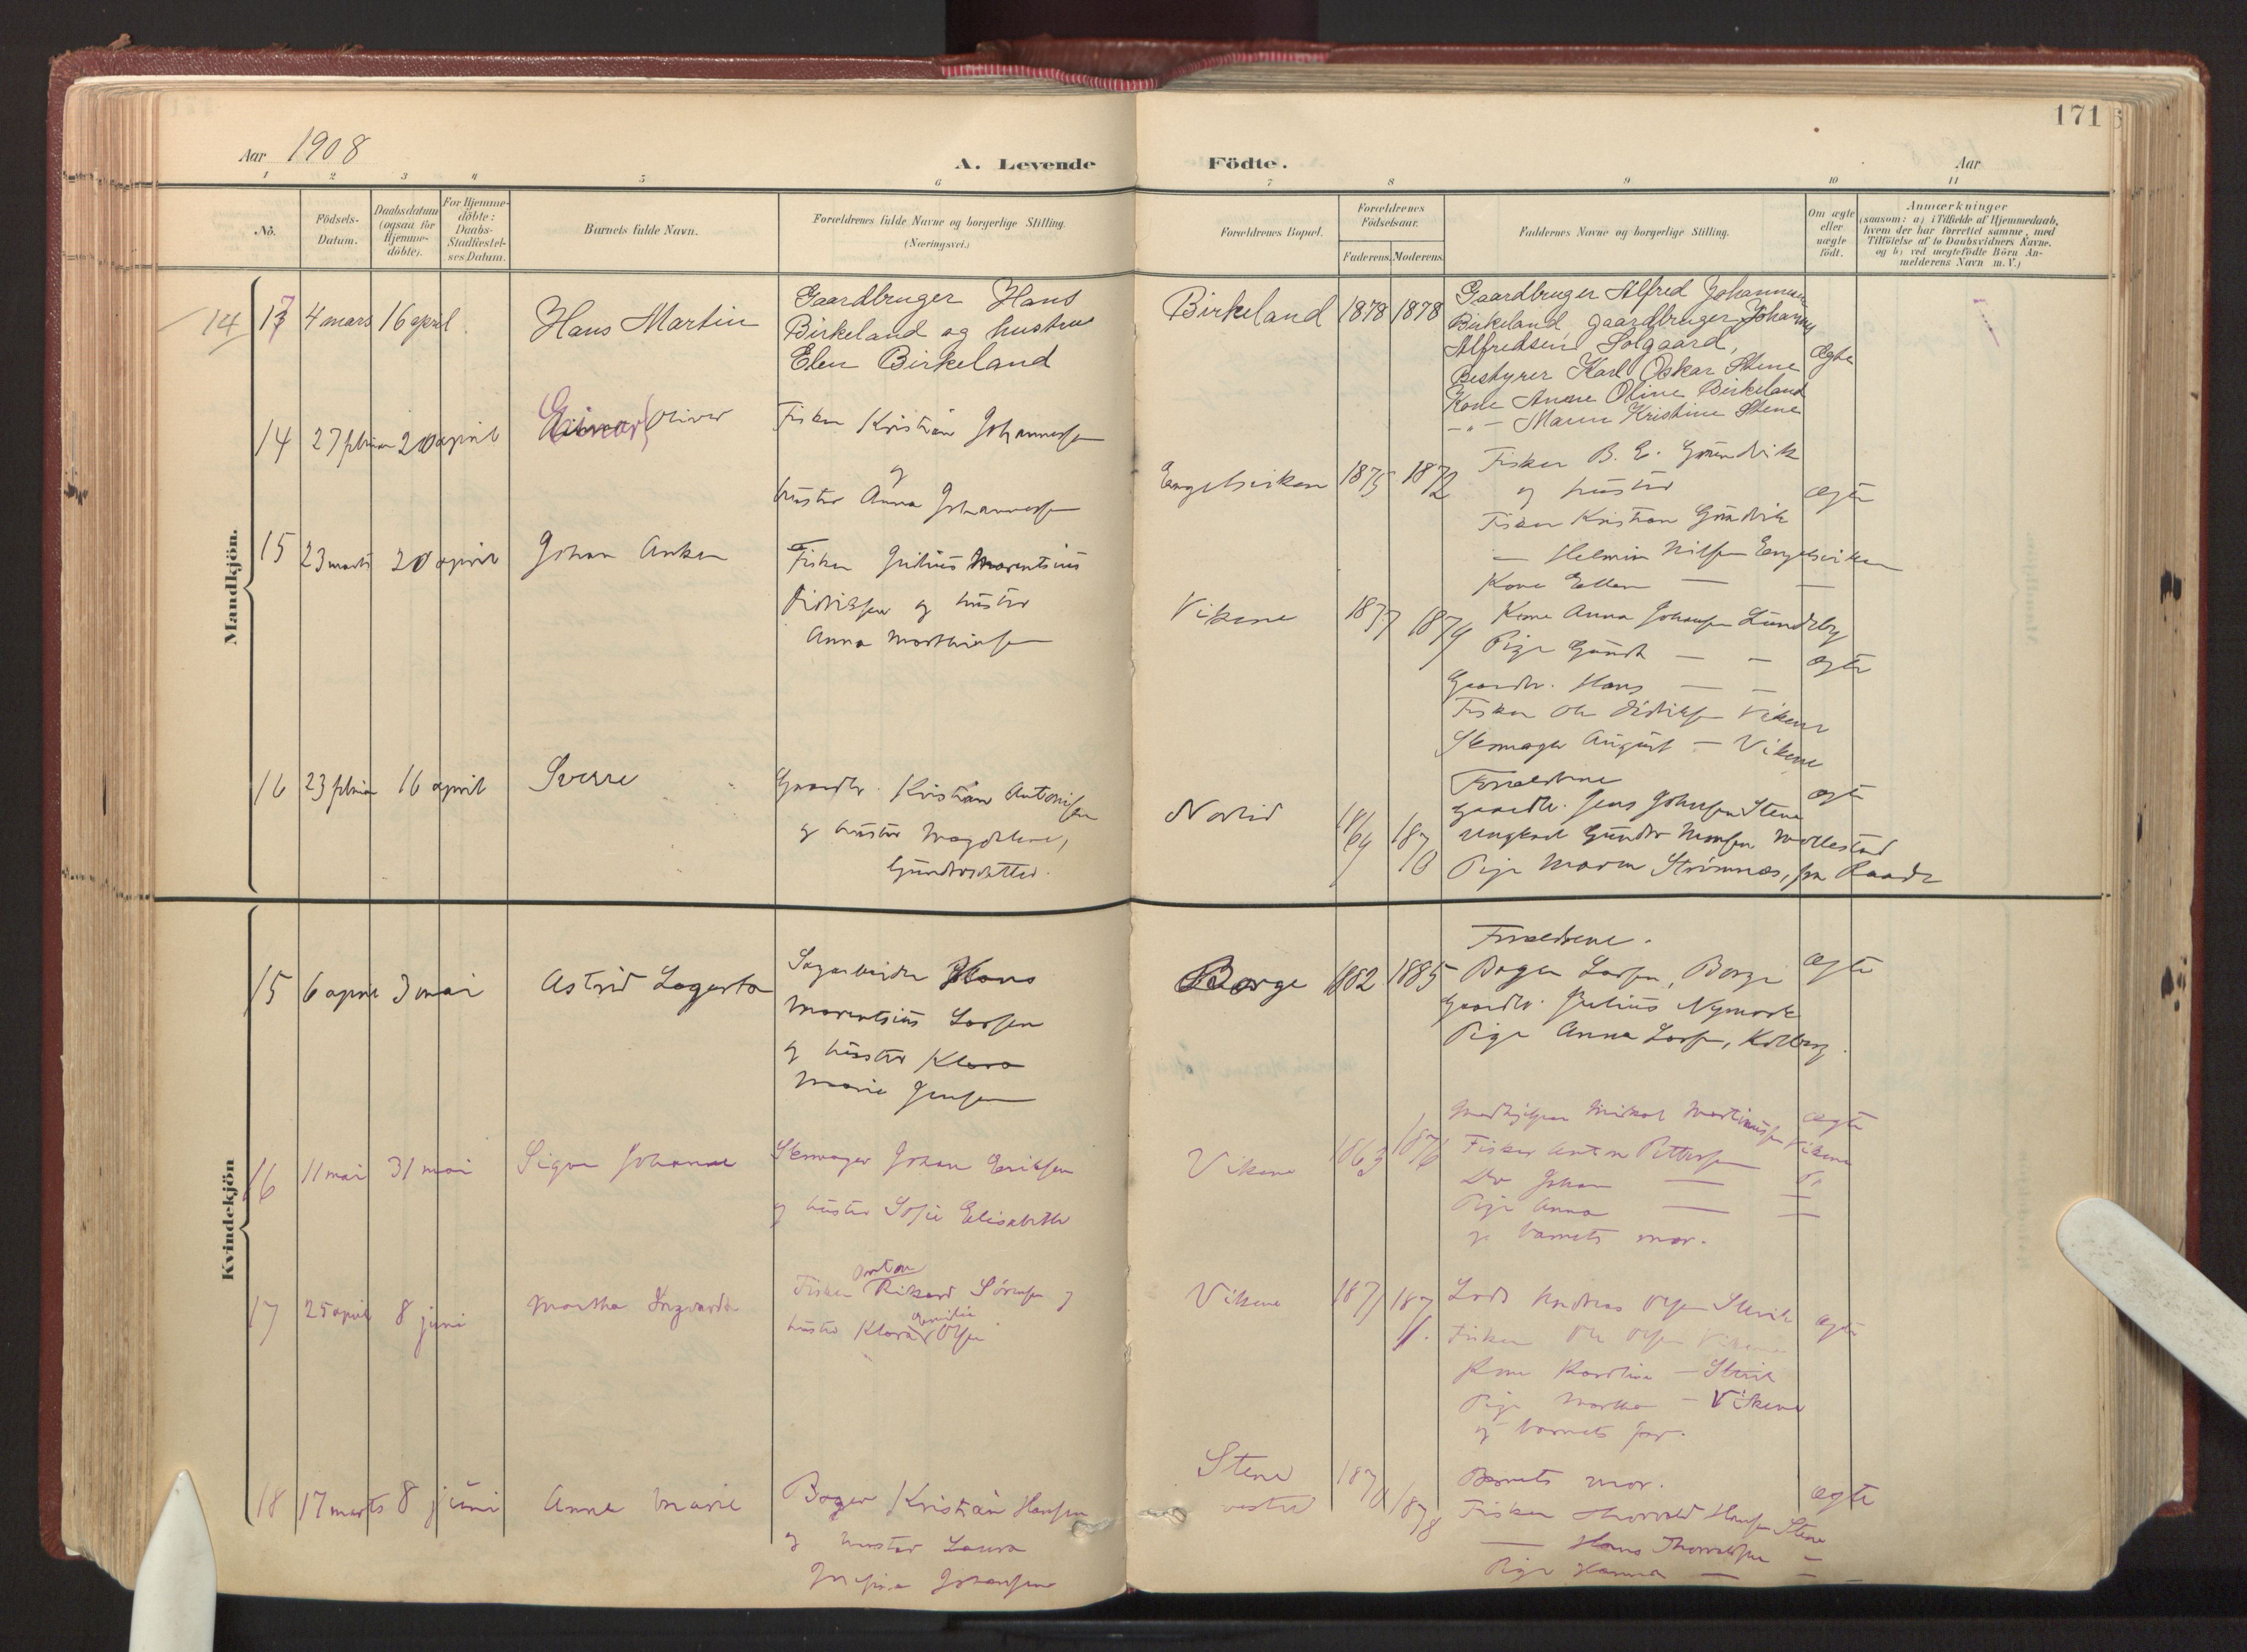 171
Aar 1908
A. Levende
Födte.
Aar
1 2 3 4 5 6 7 8 9 10 11
No.
Födsels-Datum.
Daabsdatum (ogsaa for Hjemme-döbte).
For Hjemme-döbte: Daabs-Stadfæstel-ses Datum.
Barnets fulde Navn.
Forældrenes fulde Navne og borgerlige Stilling.
(Næringsvei.)
Forældrenes Bopæl.
Forældrenes Födselsaar.
Faderens. Moderens.
Faddernes Navne og borgerlige Stilling.
Om ægte eller uægte födt.
Anmærkninger
(saasom: a) i Tilfælde af Hjemmedaab,
hvem der har forrettet samme, med
Tilföielse af to Daabsvidners Navne.
og b) ved uegtefödte Börn An-
melderens Navn m. V.)
Mandkjön.
14 13 4 mars 16 april Hans Martin
Gaardbruger Hans
Birkeland og hustru
Elen Birkeland
Birkeland 1878 1878
Gaardbruger Alfred Johannesen
Birkeland, gaardbruger Johannes
Alfredsen Solgaard,
Bestyrer Karl Oskar Stene
Kone Anne Oline Birkeland
-"- Maren Kristine Stene
Ægte
14 27 februar 20 april Einar Oliver
Fisker Kristian Johannessen
og
hustru Anna Johannessen
Engelsviken 1875 1872
Fisker B. E.
og hustru
Fisker Kristian
— Helmin Nilsen Engelsviken
Kone Ellen — —
ægte
15 23 marts 20 april Johan Anker
Fisker Julius Marentsius
Didriksen og hustru
Anna Mathiesen
Vikene 1877 1874
Kone Anna Johansen Lundeby
Pige — —
Gaardbr. Hans — —
Fisker Ole Didriksen Vikene
Skomager August — Vikene
ægte
16 23 februar 16 april Sverre
Gaardbr. Kristian Antonisen
og hustru Magdalene,
Gundersdatter.
Norlid 1864 1870
Forældrene
Gaardbr. Jens Johnsen Stene
Ungkarl Gunder Monsen
Pige Maren Strømnæs, fra Raade
ægte
Kvindekjön
15 6 april 3 mai Astrid Lagerta
Sagarbeider Hans
Marentsius Larsen
og hustru Klara
Marie Jensen
Borge 1882 1885
Forældrene.
Bager Larsen, Borge
Gaardbr. Julius Nymark
Pige Anna Larsen, Kolberg.
ægte
16 11 mai 31 mai Signe Johanne
Skomager Johan Eriksen
og hustru Sofie Elisabeth
Vikene 1863 1876
Martinussen Vikene
Fisker Anton Pettersen
Johan —
Pige Anna — —
og barnets mor.
ægte
17 25 april 8 juni Martha Ingvarda
Fisker Anton Rikard Sørensen og
hustru Klara Emilie Olsen
Vikene 187
Lods Andreas Olsen
Fisker Ole Olsen Vikene
Kone Karoline —
Pige Martha — Vikene
og barnets far.
ægte
18 17 marts 8 juni Anne Marie
Bager Kristian Hansen
og hustru Laura
Josefine Johansen
Stene
vestre
1870 1878
Barnets mor.
Fisker Thorvald Hansen Stene
— Hans Thorvaldsen —
Pige Hanna — —
ægte